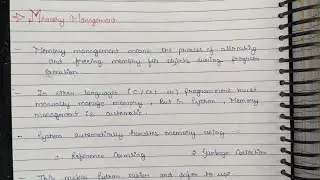 Memory Management
- Memory management means the process of allocating
and freeing memory for objects during program
execution
- In other languages (C/C++ etc) programmers must
manually manage memory, But in Python, Memory
management is automatic.
- Python automatically handles memory using
Reference Counting Garbage Collection
- This makes Python easier and safer to use